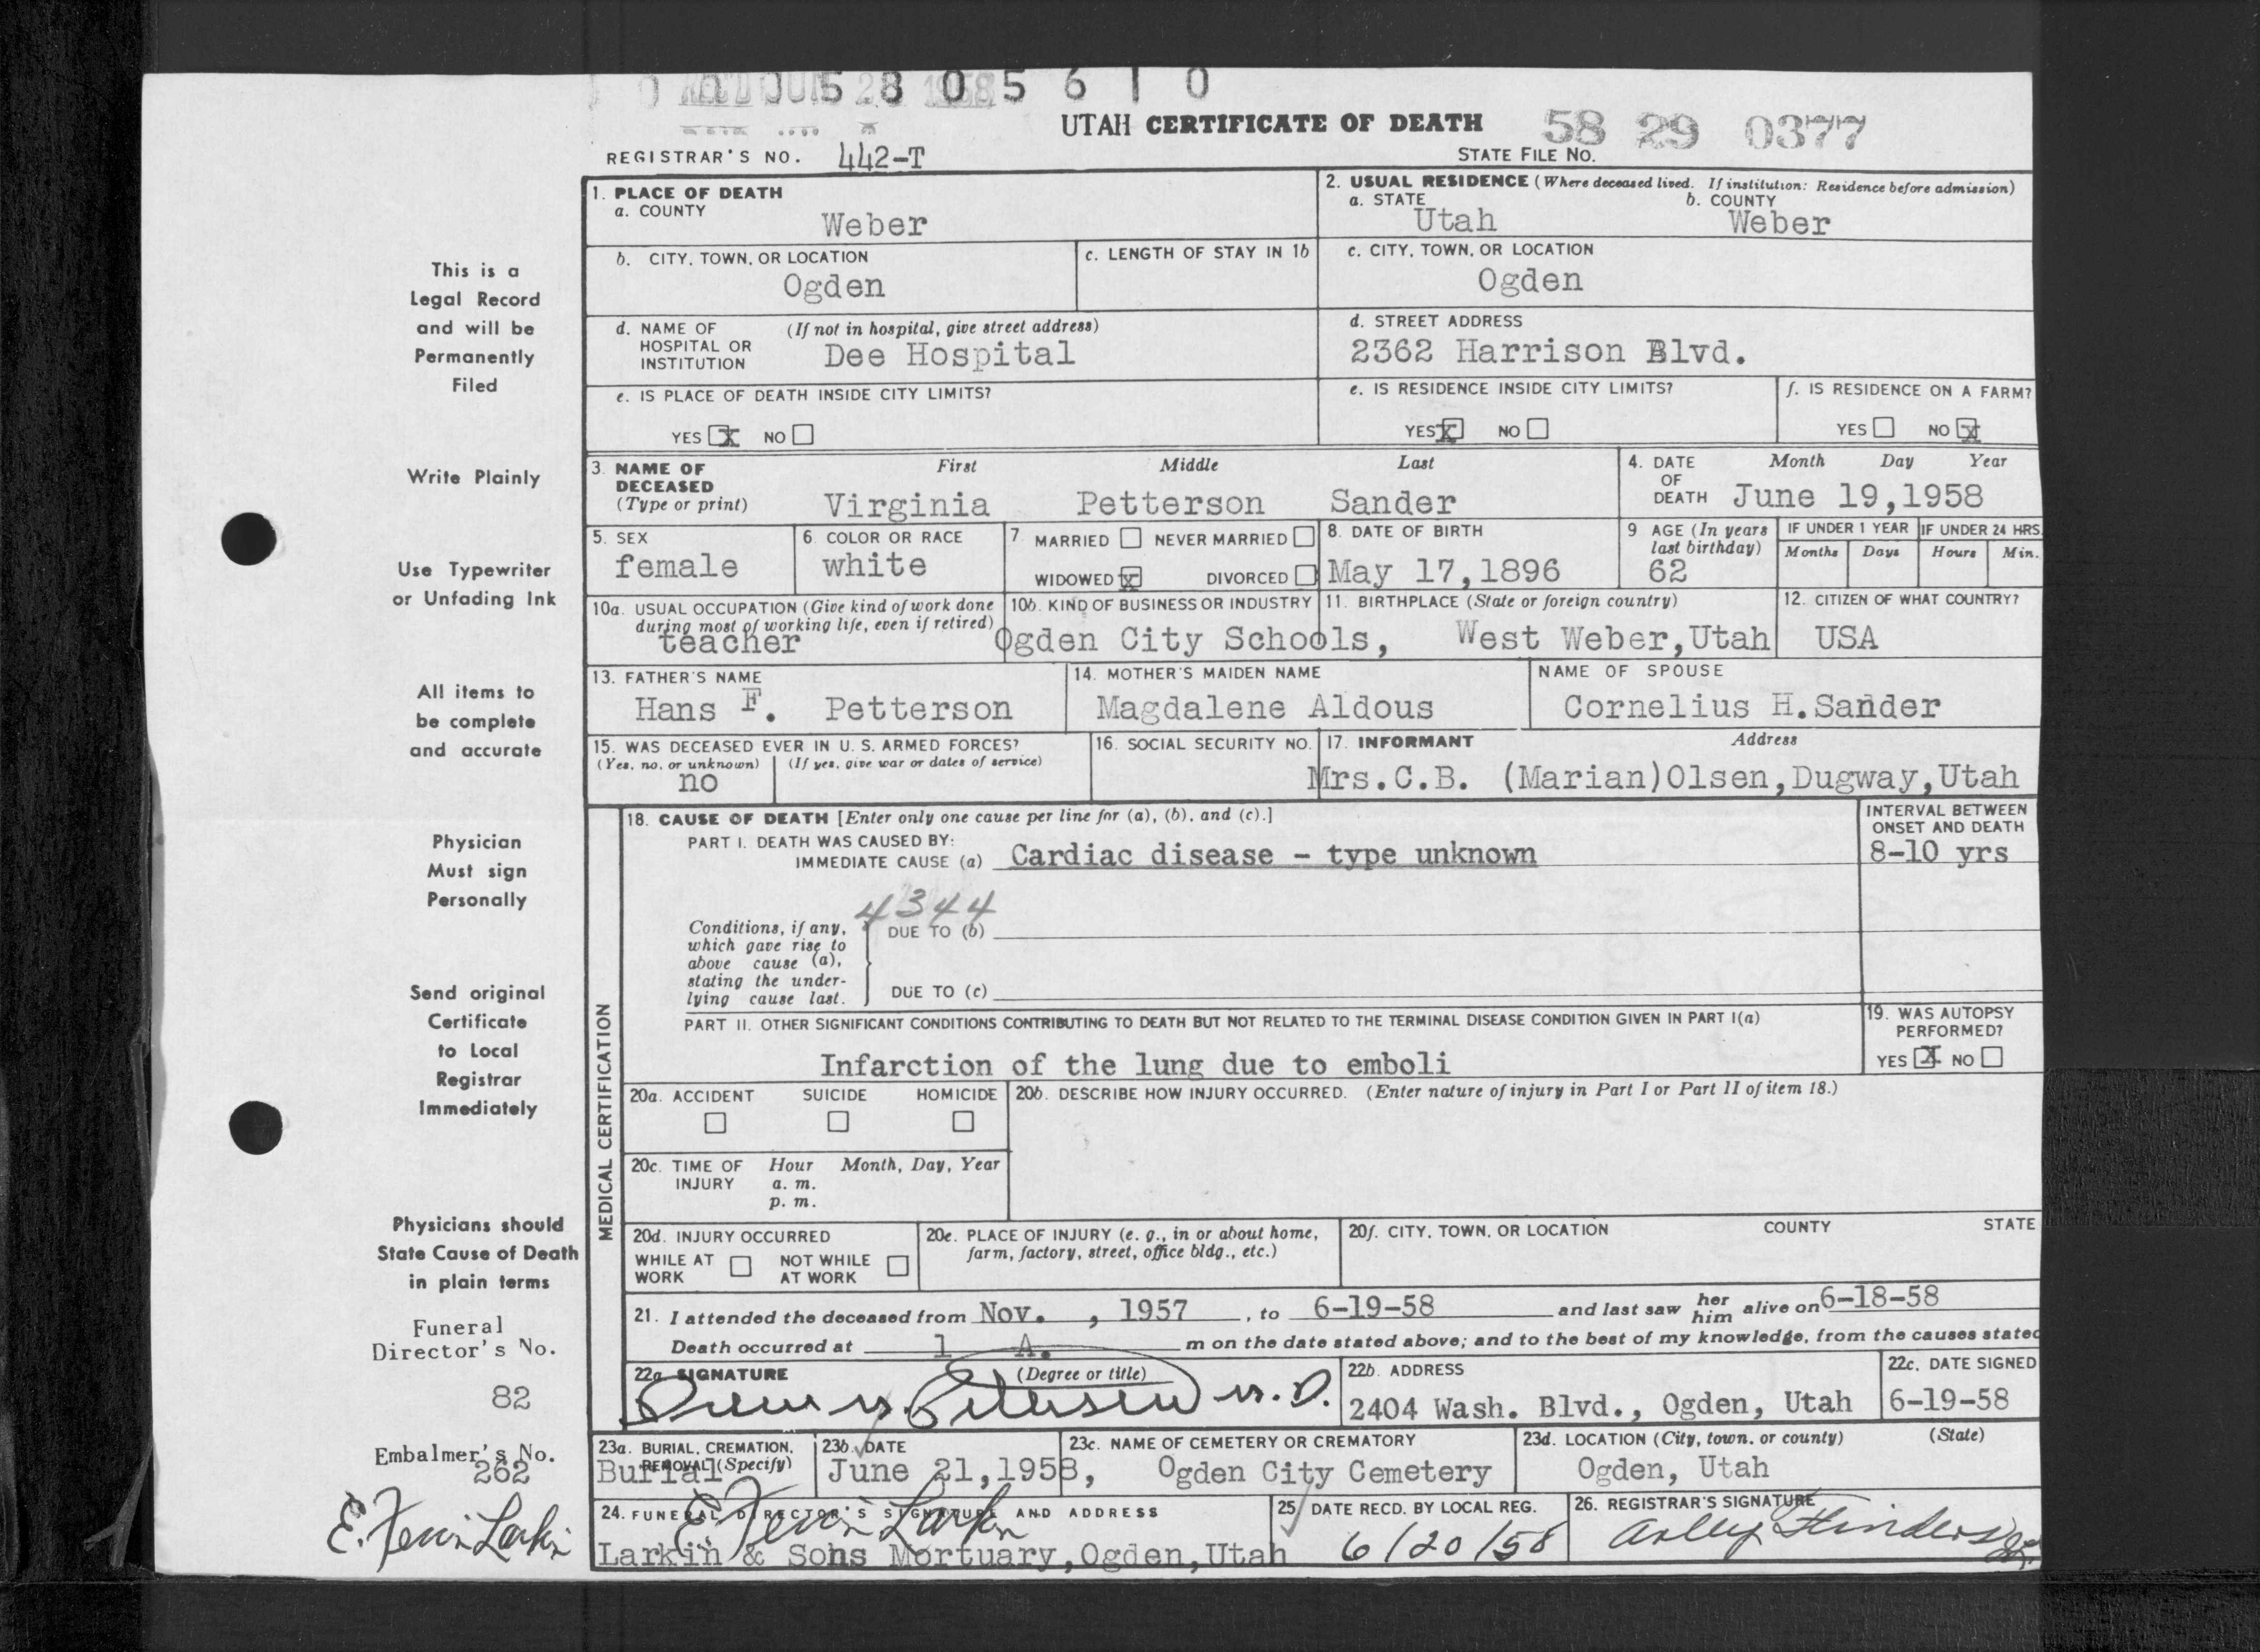 0 0 5 8 0 5 6 1 0
UTAH CERTIFICATE OF DEATH 58 29 0377
REGISTRAR'S NO. 442-T STATE FILE No.
1. PLACE OF DEATH
a. COUNTY
Weber
2. USUAL RESIDENCE (Where deceased lived. If institution: Residence before admission)
a. STATE b. COUNTY
Utah Weber
b. CITY, TOWN, OR LOCATION
Ogden
c. LENGTH OF STAY IN 1b
c. CITY, TOWN, OR LOCATION
Ogden
d. NAME OF (If not in hospital, give street address)
HOSPITAL OR
INSTITUTION Dee Hospital
d. STREET ADDRESS
2362 Harrison Blvd.
e. IS PLACE OF DEATH INSIDE CITY LIMITS?
YES X NO
e. IS RESIDENCE INSIDE CITY LIMITS?
YES X NO
f. IS RESIDENCE ON A FARM?
YES NO X
3. NAME OF DECEASED (Type or print) First Middle Last
Virginia Petterson Sander
4. DATE OF DEATH Month Day Year
June 19,1958
5. SEX
female
6. COLOR OR RACE
white
7. MARRIED NEVER MARRIED
WIDOWED X DIVORCED
8. DATE OF BIRTH
May 17,1896
9 AGE (In years last birthday)
62
IF UNDER 1 YEAR IF UNDER 24 HRS.
Months Days Hours Min.
10a. USUAL OCCUPATION (Give kind of work done
during most of working life, even if retired)
teacher
10b. KIND OF BUSINESS OR INDUSTRY
Ogden City Schools,
11. BIRTHPLACE (State or foreign country)
West Weber,Utah
12. CITIZEN OF WHAT COUNTRY?
USA
13. FATHER'S NAME
Hans F. Petterson
14. MOTHER'S MAIDEN NAME
Magdalene Aldous
NAME OF SPOUSE
Cornelius H.Sander
15. WAS DECEASED EVER IN U. S. ARMED FORCES?
(Yes, no, or unknown) (If yes, give war or dates of service)
no
16. SOCIAL SECURITY NO.
17. INFORMANT Address
Mrs.C.B. (Marian)Olsen,Dugway,Utah
MEDICAL CERTIFICATION
18. CAUSE OF DEATH [Enter only one cause per line for (a), (b), and (c).]
PART I. DEATH WAS CAUSED BY:
IMMEDIATE CAUSE (a) Cardiac disease - type unknown
INTERVAL BETWEEN
ONSET AND DEATH
8-10 yrs
4344
Conditions, if any,
which gave rise to
above cause (a),
stating the under-
lying cause last.
DUE TO (b)
DUE TO (c)
PART II. OTHER SIGNIFICANT CONDITIONS CONTRIBUTING TO DEATH BUT NOT RELATED TO THE TERMINAL DISEASE CONDITION GIVEN IN PART I(a)
Infarction of the lung due to emboli
19. WAS AUTOPSY
PERFORMED?
YES X NO
20a. ACCIDENT SUICIDE HOMICIDE
20b. DESCRIBE HOW INJURY OCCURRED. (Enter nature of injury in Part I or Part II of item 18.)
20c. TIME OF INJURY Hour Month, Day, Year
a. m.
p. m.
20d. INJURY OCCURRED
WHILE AT WORK NOT WHILE AT WORK
20e. PLACE OF INJURY (e. g., in or about home,
farm, factory, street, office bldg., etc.)
20f. CITY, TOWN, OR LOCATION COUNTY STATE
21. I attended the deceased from Nov. , 1957 , to 6-19-58 and last saw her him alive on 6-18-58
Death occurred at 1 A. m on the date stated above; and to the best of my knowledge, from the causes stated
22a SIGNATURE (Degree or title)
Petersen M.D.
22b. ADDRESS
2404 Wash. Blvd., Ogden, Utah
22c. DATE SIGNED
6-19-58
23a. BURIAL, CREMATION,
REMOVAL (Specify)
Burial
23b. DATE
June 21,1958,
23c. NAME OF CEMETERY OR CREMATORY
Ogden City Cemetery
23d. LOCATION (City, town, or county) (State)
Ogden, Utah
24. FUNERAL DIRECTOR'S SIGNATURE AND ADDRESS
E. Larkin
Larkin & Sons Mortuary,Ogden,Utah
25 DATE RECD. BY LOCAL REG.
6/20/58
26. REGISTRAR'S SIGNATURE
Flinders
This is a
Legal Record
and will be
Permanently
Filed
Write Plainly
Use Typewriter
or Unfading Ink
All items to
be complete
and accurate
Physician
Must sign
Personally
Send original
Certificate
to Local
Registrar
Immediately
Physicians should
State Cause of Death
in plain terms
Funeral
Director's No.
82
Embalmer's No.
262
E. Larkin